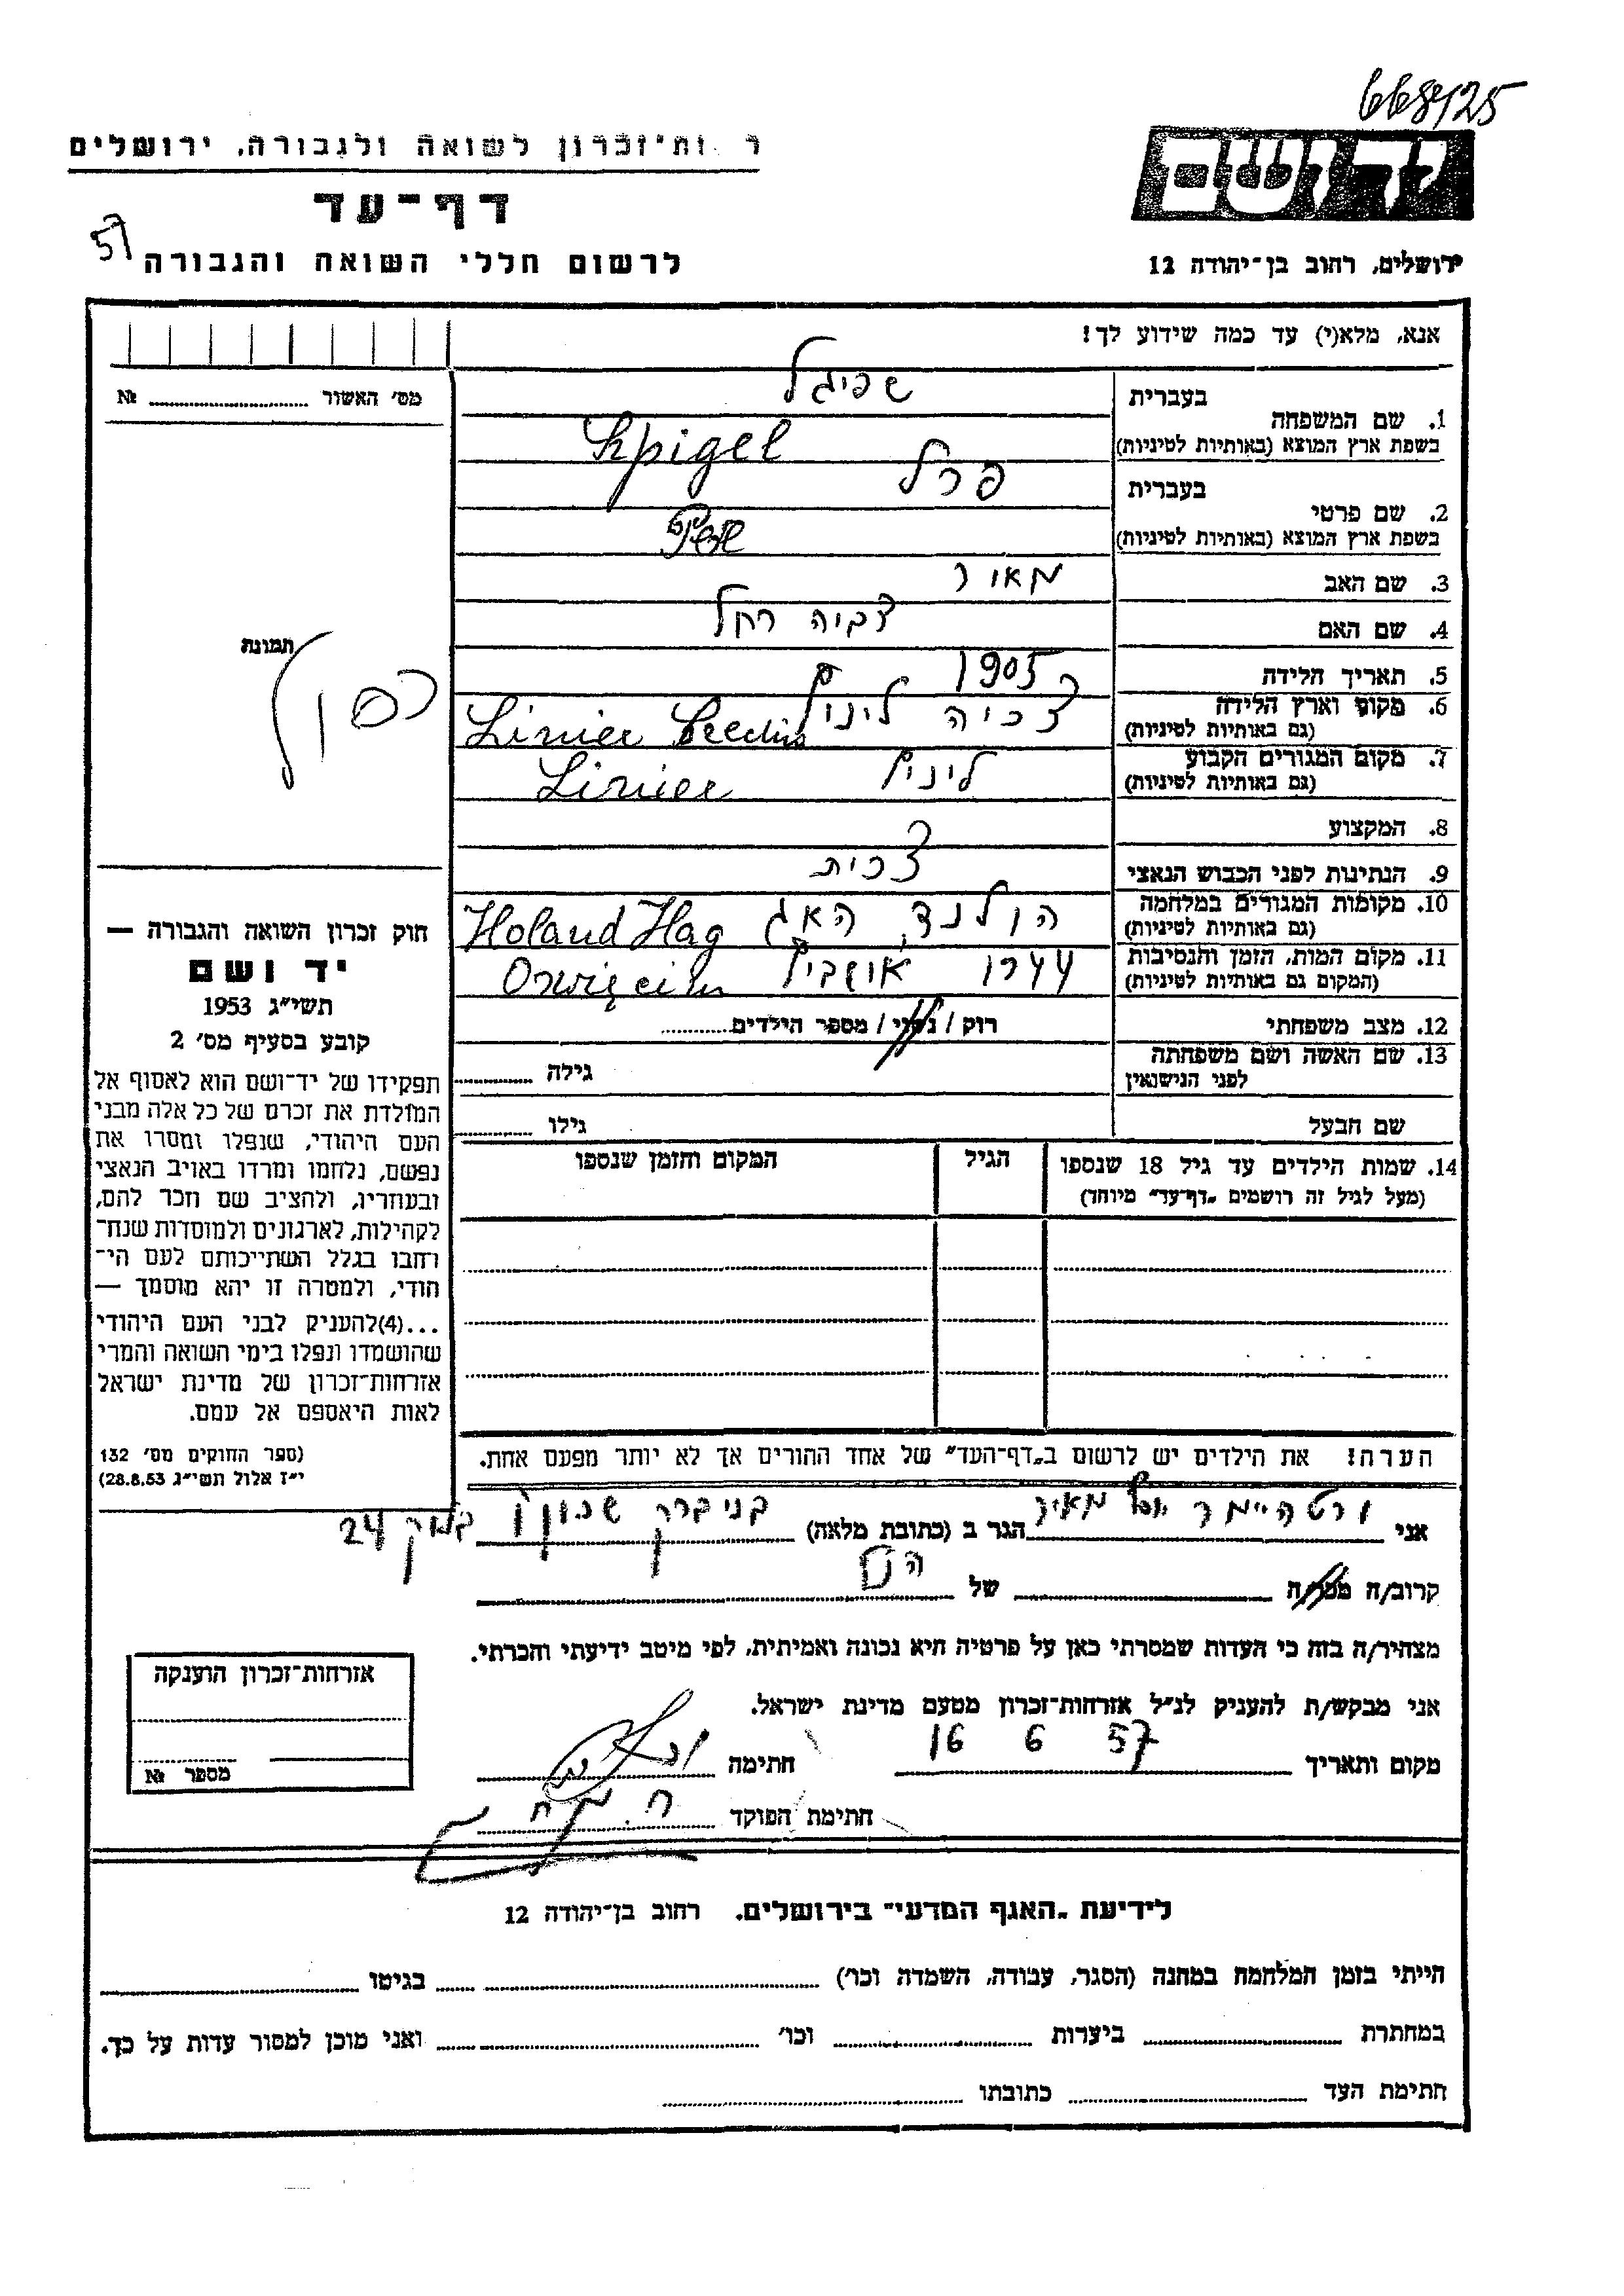 668425
ר ות־זכרון לשואה ולגבורה, ירושלים
דף־עד
57
לרשום חללי השואה והגבורה
יד ושם
ירושלים, רחוב בן־יהודה 12
אנא, מלא(י) עד כמה שידוע לך!
מס׳ האשור № 
1. שם המשפחה בעברית שפיגל
בשפת ארץ המוצא (באותיות לטיניות) Spigel
2. שם פרטי בעברית פרל
בשפת ארץ המוצא (באותיות לטיניות) Perl
3. שם האב מאור
4. שם האם צביה רחל
5. תאריך הלידה 1905
6. מקום וארץ הלידה
(גם באותיות לטיניות)
7. מקום המגורים הקבוע
(גם באותיות לטיניות)
8. המקצוע
9. הנתינות לפני הכבוש הנאצי צכית
10. מקומות המגורים במלחמה הולנד, האג Holand Hag
(גם באותיות לטיניות)
11. מקום המות, הזמן והנסיבות 1944
(המקום גם באותיות לטיניות)
12. מצב משפחתי רוק / נשוי / מספר הילדים
13. שם האשה ושם משפחתה גילה
לפני הנישואין
שם הבעל גילו
14. שמות הילדים עד גיל 18 שנספו הגיל המקום והזמן שנספו
(מעל לגיל זה רושמים „דף־עד״ מיוחד)
הערה! את הילדים יש לרשום ב„דף־העד״ של אחד ההורים אך לא יותר מפעם אחת.
תמונה
חוק זכרון השואה והגבורה —
יד ושם
תשי״ג 1953
קובע בסעיף מס׳ 2
תפקידו של יד־ושם הוא לאסוף אל
המולדת את זכרם של כל אלה מבני
העם היהודי, שנפלו ומסרו את
נפשם, נלחמו ומרדו באויב הנאצי
ובעוזריו, ולהציב שם וזכר להם,
לקהילות, לארגונים ולמוסדות שנח־
רבו בגלל השתייכותם לעם הי־
הודי, ולמטרה זו יהא מוסמך —
...(4)להעניק לבני העם היהודי
שהושמדו ונפלו בימי השואה והמרי
אזרחות־זכרון של מדינת ישראל
לאות היאספם אל עמם.
(ספר החוקים מס׳ 132
י״ז אלול תשי״ג 28.8.53)
אני ורטהיימר מאיר הגר ב (כתובת מלאה) בני ברק שכון 24
קרוב/ה מכר/ה של
מצהיר/ה בזה כי העדות שמסרתי כאן על פרטיה היא נכונה ואמיתית, לפי מיטב ידיעתי והכרתי.
אני מבקש/ת להעניק לנ״ל אזרחות־זכרון מטעם מדינת ישראל.
מקום ותאריך 16 6 57 חתימה
חתימת הפוקד
אזרחות־זכרון הוענקה
מספר №
לידיעת „האגף המדעי״ בירושלים, רחוב בן־יהודה 12
הייתי בזמן המלחמה במחנה (הסגר, עבודה, השמדה וכו׳) בגיטו
במחתרת ביערות וכו׳ ואני מוכן למסור עדות על כך.
חתימת העד כתובתו